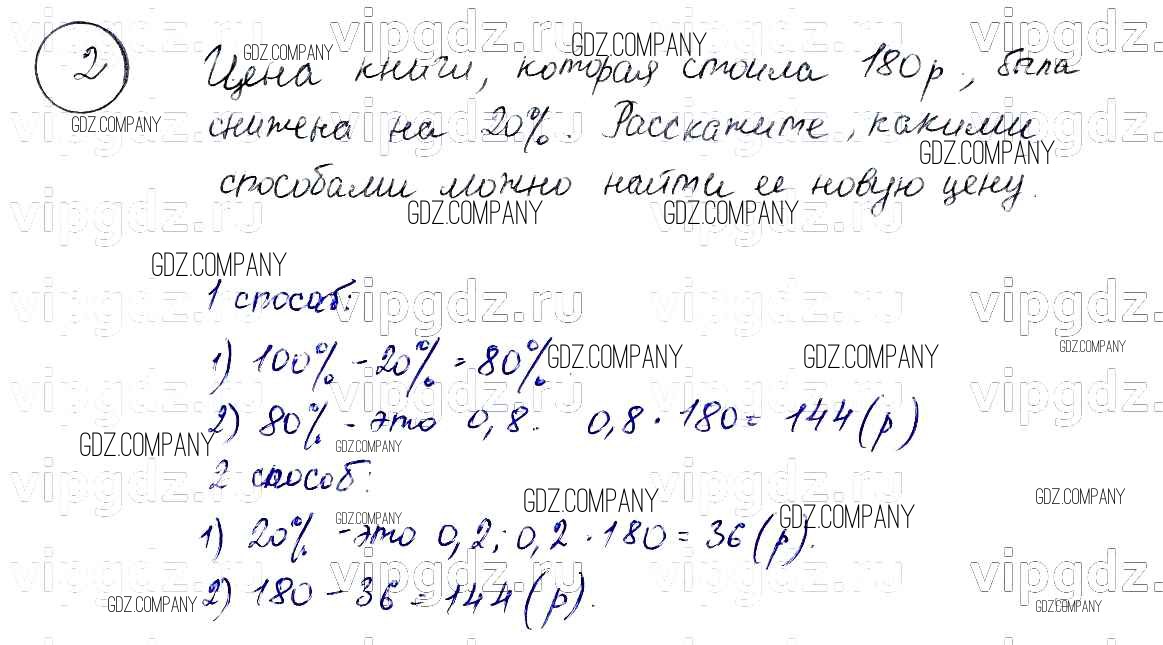 2
Цена книги, которая стоила 180 р, была
снижена на 20%. Расскажите, какими
способами можно найти ее новую цену.
1 способ:
1) 100% - 20% = 80%
2) 80% - это 0,8. 0,8 · 180 = 144 (р)
2 способ:
1) 20% - это 0,2; 0,2 · 180 = 36 (р).
2) 180 - 36 = 144 (р).
GDZ.COMPANY
vipgdz.ru